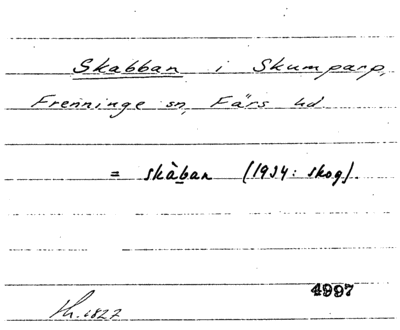 Skabban i Skumparp,
Frenninge sn, Färs hd
= skàban (1934: skog).
4997
Th. 1827